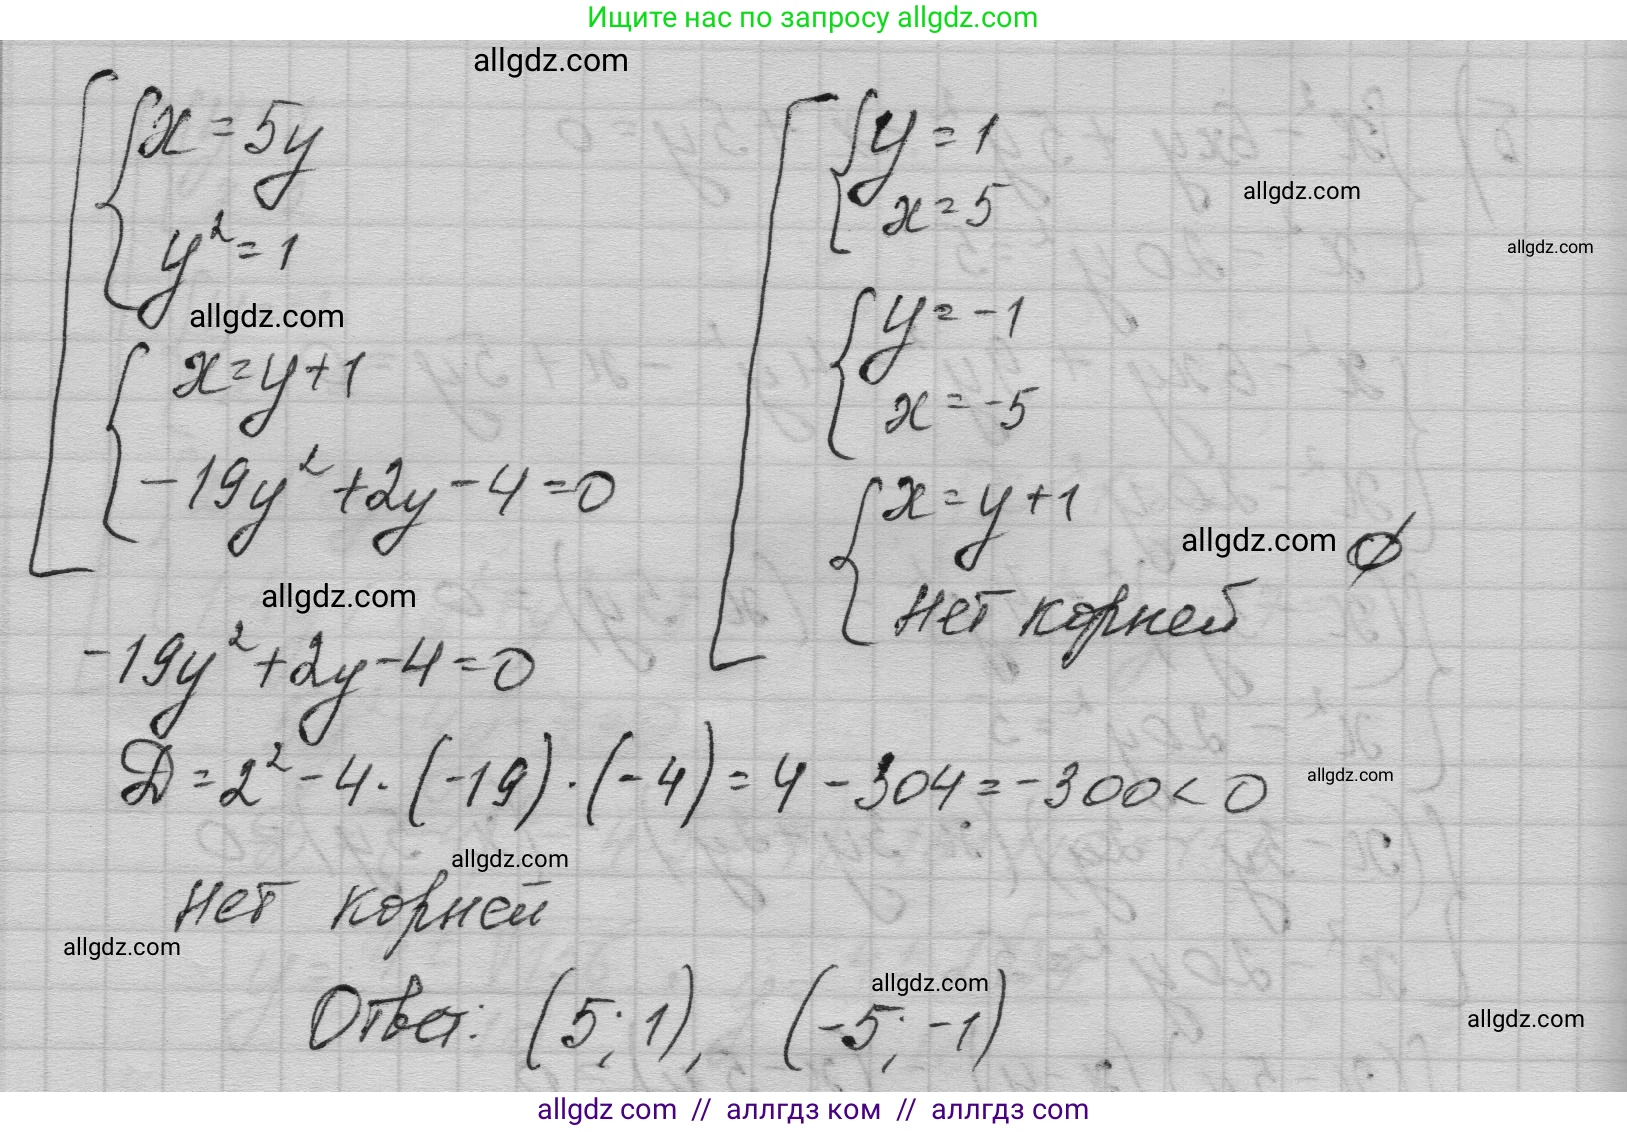 Ищите нас по запросу allgdz.com
allgdz.com
x = 5y
y² = 1
allgdz.com
x = y + 1
-19y² + 2y - 4 = 0
y = 1
x = 5
allgdz.com
allgdz.com
y = -1
x = -5
x = y + 1
allgdz.com ∅
нет корней
allgdz.com
-19y² + 2y - 4 = 0
D = 2² - 4 · (-19) · (-4) = 4 - 304 = -300 < 0
allgdz.com
allgdz.com
нет корней
allgdz.com
allgdz.com
Ответ: (5; 1), (-5; -1)
allgdz.com
allgdz com // аллгдз ком // аллгдз com